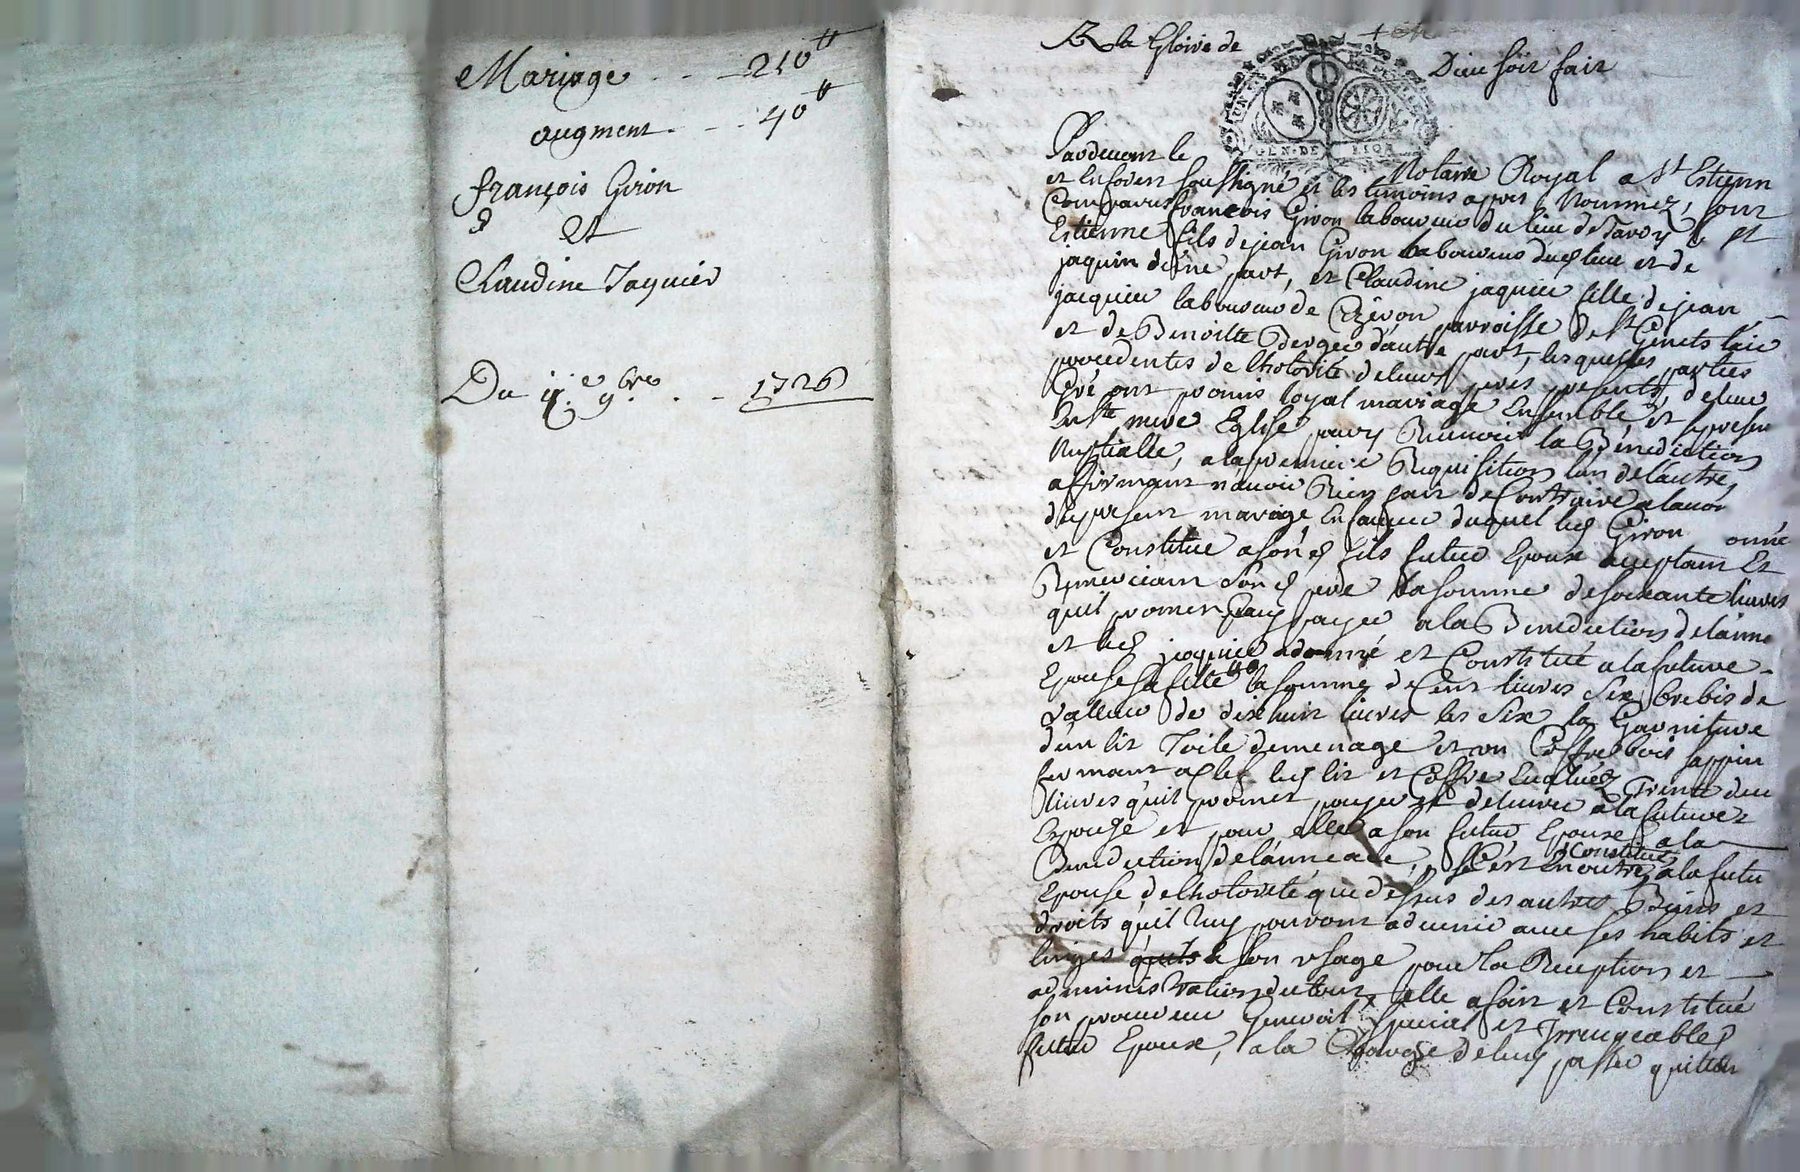 Mariage . . 210 tt
augment . . . 40 tt
françois Giron
et
Claudine Jaquier
Du ij.e 9.bre . . 1726
A la Gloire de Dieu soit fait
UN SOL
GEN. DE LION
Pardevant le Notaire Royal a St Estienne
et en forez soussigné et les temoins apres Nommez, sont
Comparus françois Giron laboureur du lieu de
Estienne fils de jean Giron laboureur dud lieu et de
jaquin d'une part, et Claudine jaquier fille de jean
jacquier laboureur de parroisse de St Genets
et de Benoitte Berger d'autre part, lesquelles parties
procedentes de lhotorité de leurs peres presents, de leur
gré ont promis loyal mariage Ensemble, et se presenter
En Ste mere Eglise pour y Recevoir la Benediction
Nuptialle, a la premiere Requisition lun de l'autre,
affirmant n'avoir Rien fait de Contraire a
du present mariage En faveur duquel led Giron a donné
et Constitué a son d fils futur Epoux acceptant Et
Remerciant son d pere la somme de soixante livres
quil promet payer a la Benediction de l'anneau
et led jaquier a donné et Constitué a la future
Epouse sa fille la somme de Cent livres six brebis de
valleur de dix huit livres les six la Garniture
d'un lit Toile de menage et un Coffre bois sappin
fermant a clef led lit et Coffre Evalués Trente deux
livres quil promet payer et delivrer a la future
Epouse et pour elle a son futur Epoux a la
Benediction de l'anneau, s'est En outre Constitué a la future
Epouse de lhotorité que dessus des autres Biens et
droits quil luy pourront advenir avec ses habits et
linges a son usage pour la Reception et
administration du tout, elle a fait et Constitué
son procureur General special et Irrevocable
futur Epoux, a la Charge de luy passer quittance